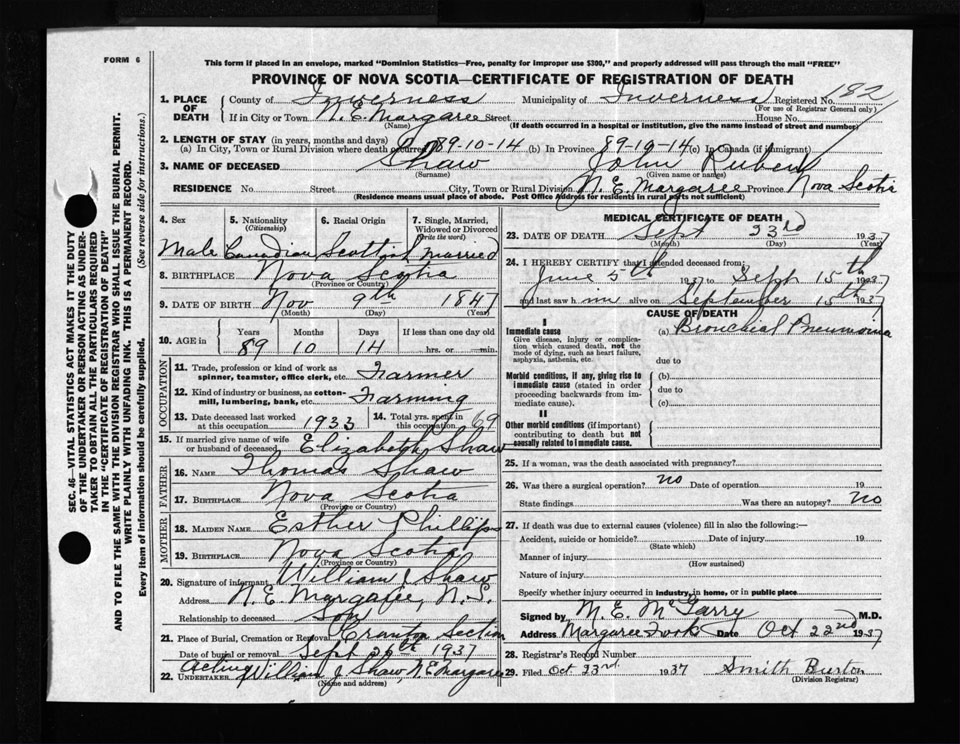 FORM 6
This form if placed in an envelope, marked "Dominion Statistics—Free, penalty for improper use $300," and properly addressed will pass through the mail "FREE"
PROVINCE OF NOVA SCOTIA—CERTIFICATE OF REGISTRATION OF DEATH
1. PLACE OF DEATH County of Inverness Municipality of Inverness Registered No. 182
(For use of Registrar General only)
If in City or Town N. E. Margaree Street House No.
(Name) (If death occurred in a hospital or institution, give the name instead of street and number)
2. LENGTH OF STAY (in years, months and days)
(a) In City, Town or Rural Division where death occurred 89-10-14 (b) In Province 89-10-14 (c) In Canada (if immigrant)
3. NAME OF DECEASED Shaw John Ruben
(Surname) (Given name or names)
RESIDENCE No. Street City, Town or Rural Division N. E. Margaree Province Nova Scotia
(Residence means usual place of abode. Post Office address for residents in rural parts not sufficient)
4. Sex 5. Nationality (Citizenship) 6. Racial Origin 7. Single, Married, Widowed or Divorced (Write the word)
Male Canadian Scottish Married
8. BIRTHPLACE Nova Scotia
(Province or Country)
9. DATE OF BIRTH Nov 9th 1847
(Month) (Day) (Year)
10. AGE in Years Months Days If less than one day old
89 10 14 hrs. or min.
OCCUPATION
11. Trade, profession or kind of work as spinner, teamster, office clerk, etc. Farmer
12. Kind of industry or business, as cotton-mill, lumbering, bank, etc. Farming
13. Date deceased last worked at this occupation 1933 14. Total yrs. spent in this occupation 69
15. If married give name of wife or husband of deceased Elizabeth Shaw
FATHER
16. NAME Thomas Shaw
17. BIRTHPLACE Nova Scotia
(Province or Country)
MOTHER
18. MAIDEN NAME Esther Phillips
19. BIRTHPLACE Nova Scotia
(Province or Country)
20. Signature of informant William J Shaw
Address N. E. Margaree, N. S.
Relationship to deceased Son
21. Place of Burial, Cremation or Removal Cranton Section
Date of burial or removal Sept 29th 1937
22. Acting UNDERTAKER William J Shaw, N E Margaree
(Name and address)
MEDICAL CERTIFICATE OF DEATH
23. DATE OF DEATH Sept 23rd 1937
(Month) (Day) (Year)
24. I HEREBY CERTIFY that I attended deceased from:
June 5th 1937 to Sept 15th 1937
and last saw him alive on September 15th 1937
CAUSE OF DEATH
I
Immediate cause (a) Bronchial Pneumonia
Give disease, injury or complication which caused death, not the mode of dying, such as heart failure, asphyxia, asthenia, etc.
due to
Morbid conditions, if any, giving rise to immediate cause (stated in order proceeding backwards from immediate cause).
(b)
due to
(c)
II
Other morbid conditions (if important) contributing to death but not causally related to immediate cause.
25. If a woman, was the death associated with pregnancy?
26. Was there a surgical operation? no Date of operation 19
State findings Was there an autopsy? no
27. If death was due to external causes (violence) fill in also the following:—
Accident, suicide or homicide? Date of injury 19
(State which)
Manner of injury
(How sustained)
Nature of injury
Specify whether injury occurred in industry, in home, or in public place
Signed by M. E. McGarry M.D.
Address Margaree Forks Date Oct 22nd 1937
28. Registrar's Record Number
29. Filed Oct 23rd 1937 Smith Burton
(Division Registrar)
SEC. 46—VITAL STATISTICS ACT MAKES IT THE DUTY
OF THE UNDERTAKER OR PERSON ACTING AS UNDER-
TAKER TO OBTAIN ALL THE PARTICULARS REQUIRED
IN THE "CERTIFICATE OF REGISTRATION OF DEATH"
AND TO FILE THE SAME WITH THE DIVISION REGISTRAR WHO SHALL ISSUE THE BURIAL PERMIT.
WRITE PLAINLY WITH UNFADING INK. THIS IS A PERMANENT RECORD.
Every item of information should be carefully supplied. (See reverse side for instructions.)